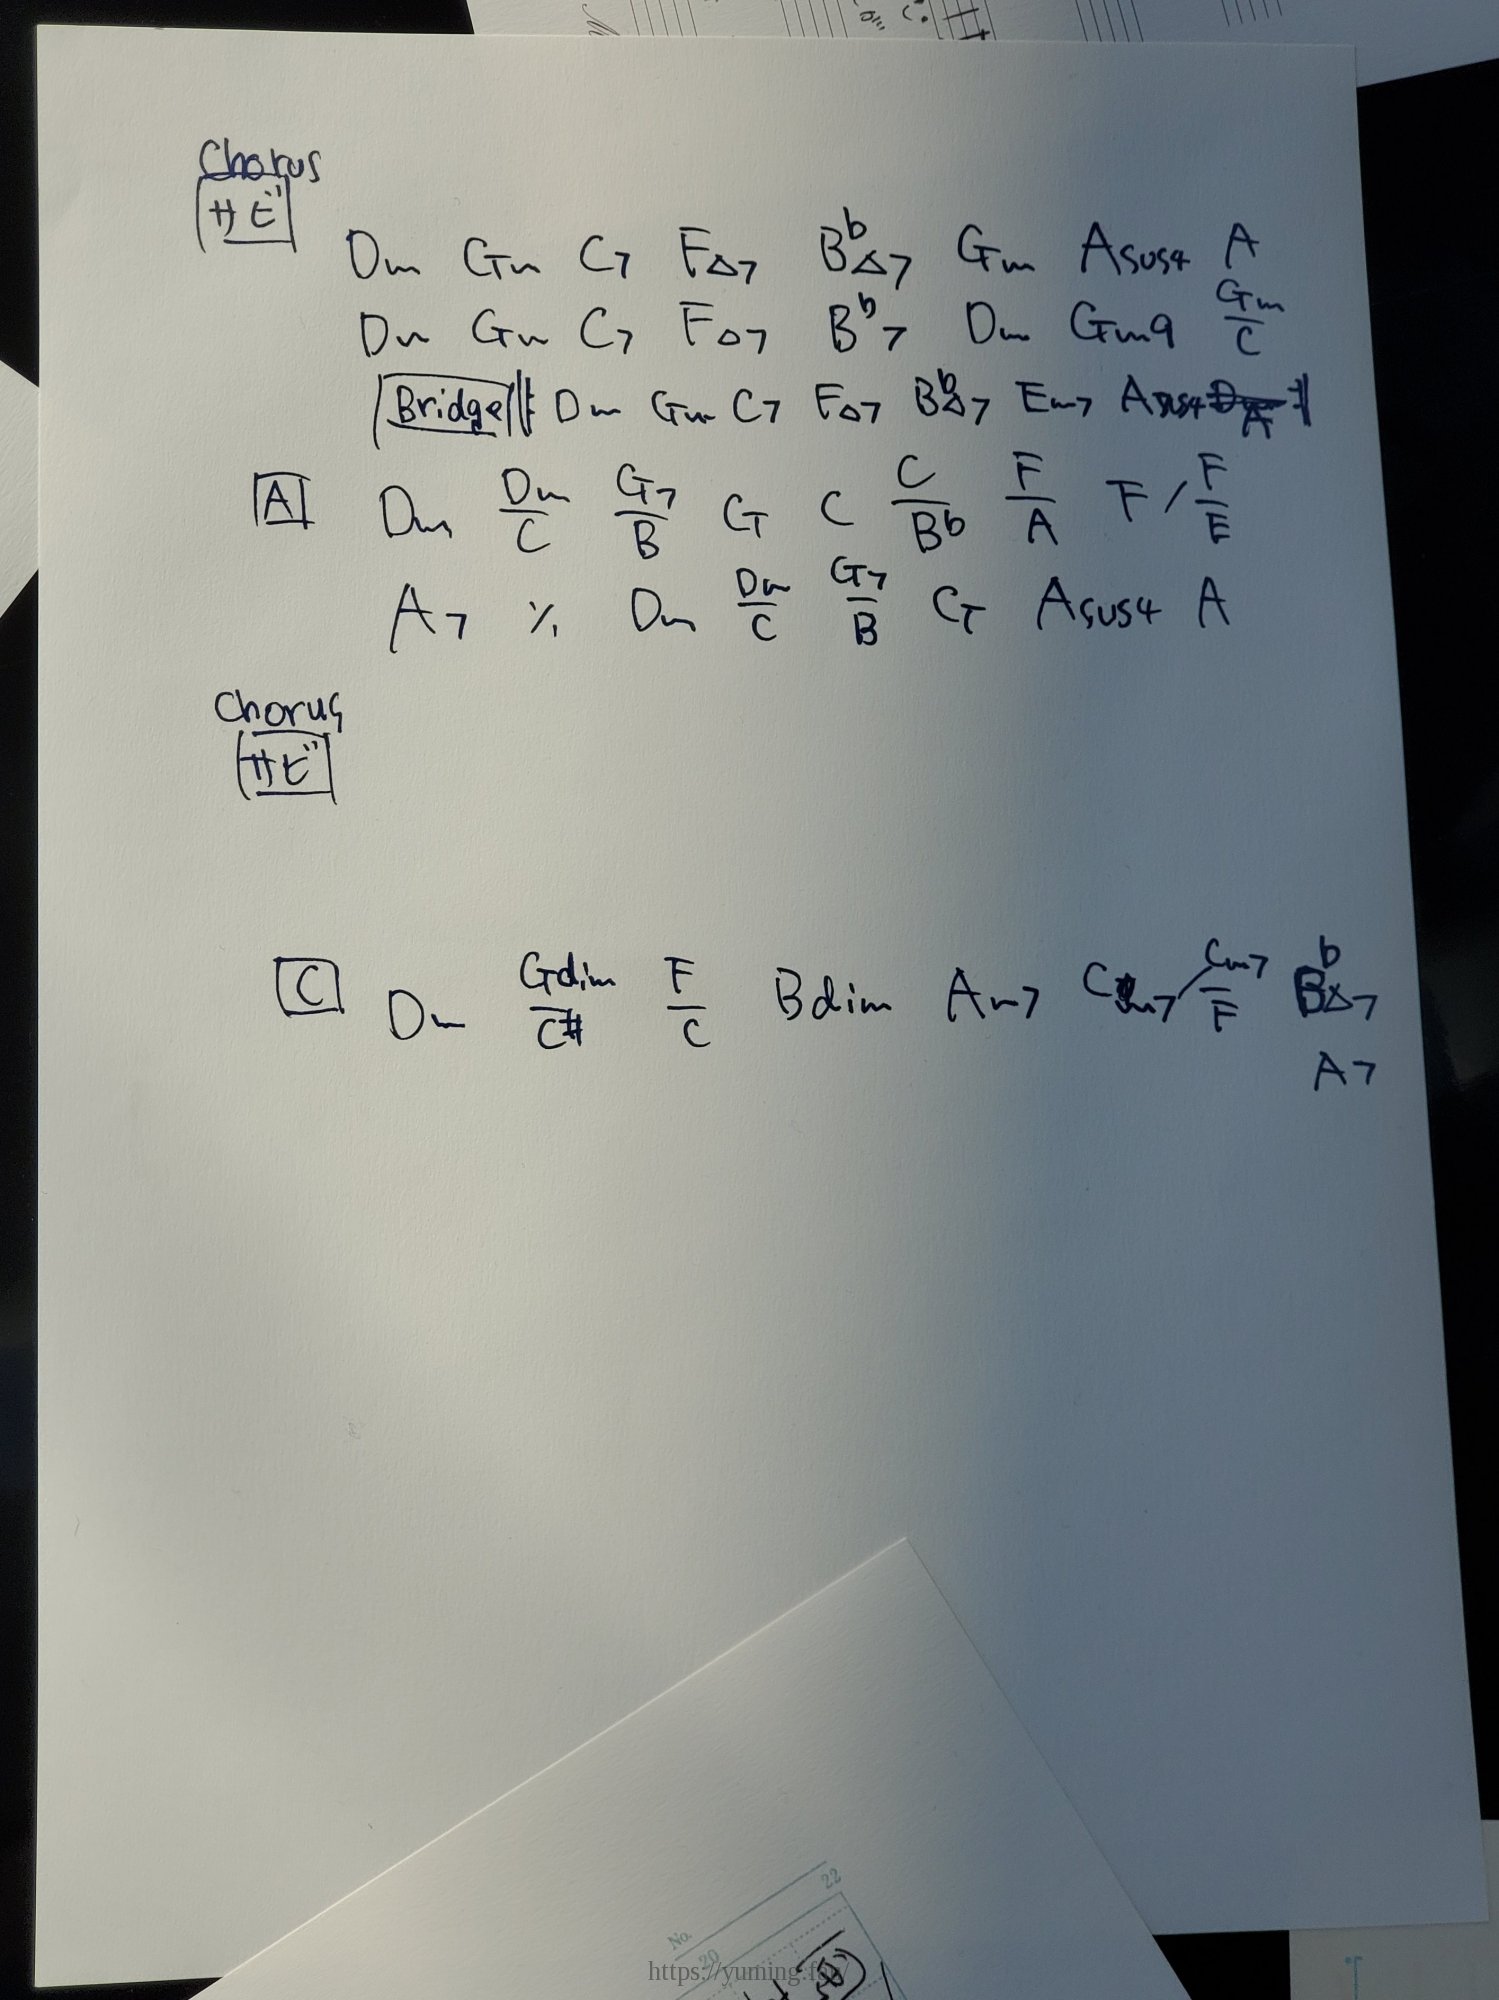 Chorus
サビ
Dm Gm C7 F△7 B♭△7 Gm Asus4 A
Dm Gm C7 F△7 B♭7 Dm Gm9 Gm/C
Bridge Dm Gm C7 F△7 B♭△7 Em7 Asus4 A
A Dm Dm/C G7/B G C C/B♭ F/A F / F/E
A7 % Dm Dm/C G7/B G Asus4 A
Chorus
サビ
C Dm Gdim/C# F/C Bdim Am7 Cm7 / Cm7/F B♭△7
A7
No.
20
22